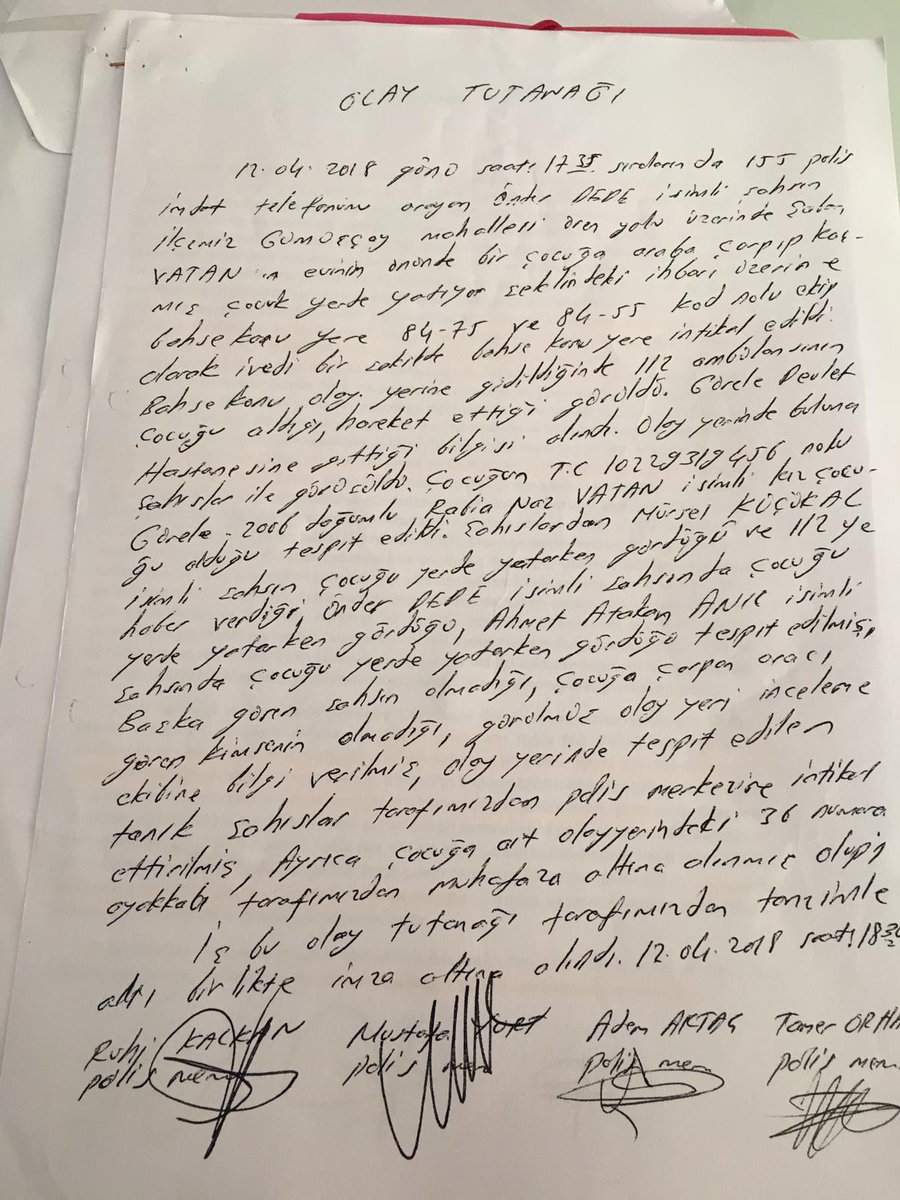 OLAY TUTANAĞI
12.04.2018 günü saat: 17 35 sıralarında 155 polis
imdat telefonunu arayan Önder DEDE isimli şahsın
ilçemiz Gümüşçay mahallesi Ören yolu üzerinde Şaban
VATAN'ın evinin önünde bir çocuğa araba çarpıp kaç-
mış çocuk yerde yatıyor şeklindeki ihbarı üzerine
bahse konu yere 84-75 ve 84-55 kod nolu ekip
olarak ivedi bir şekilde bahse konu yere intikal edildi.
Bahse konu olay yerine gidildiğinde 112 ambulansının
çocuğu aldığı, hareket ettiği görüldü. Görele Devlet
Hastanesine gittiği bilgisi alındı. Olay yerinde buluna
şahıslar ile görüşüldü. Çocuğun T.C 10229319456 nolu
Görele - 2006 doğumlu Rabia Naz VATAN isimli kız çocu-
ğu olduğu tespit edildi. Şahıslardan Mürsel KÜÇÜKAL
isimli şahsın çocuğu yerde yatarken gördüğü ve 112 ye
haber verdiği, Önder DEDE isimli şahsında çocuğu
yerde yatarken gördüğü, Ahmet Atakan ANIL isimli
şahsında çocuğu yerde yatarken gördüğü tespit edilmiş,
Başka gören şahsın olmadığı, çocuğa çarpan aracı,
gören kimsenin olmadığı, görülmüş olay yeri inceleme
ekibine bilgi verilmiş, olay yerinde tespit edilen
tanık şahıslar tarafımızdan polis merkezine intikal
ettirilmiş, Ayrıca çocuğa ait olayyerindeki 36 numara
ayakkabı tarafımızdan muhafaza altına alınmış olup;
İş bu olay tutanağı tarafımızdan tanzimle
altı birlikte imza altına alındı. 12.04.2018 saat: 18
Ruhi KALKAN Mustafa YURT Adem AKTAŞ Tamer ORHA
polis mem polis mem polis mem polis mem